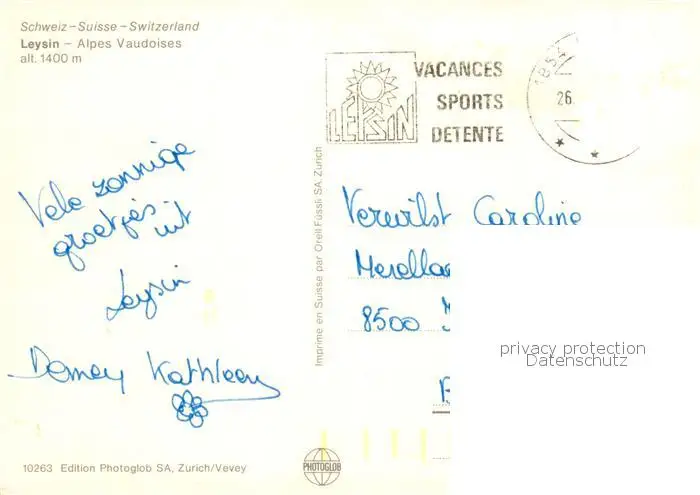 Schweiz – Suisse – Switzerland
Leysin – Alpes Vaudoises
alt. 1400 m
LEYSIN
VACANCES
SPORTS
DETENTE
1854
26.
Vele zonnige
groetjes uit
Leysin
Kathleen
Imprimé en Suisse par Orell Füssli SA, Zürich
Verwilst Caroline
8500
privacy protection
Datenschutz
PHOTOGLOB
10263 Edition Photoglob SA, Zurich/Vevey